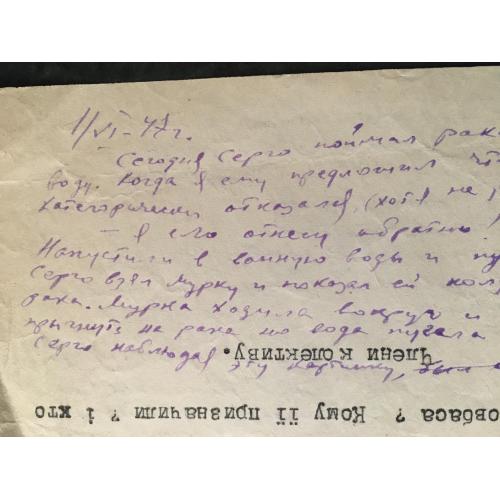 1/VI-47г.
Сегодня Серго поймал рака
воду. Когда я ему предложил чт
категорически отказался, (хотя не
— я его отнесу обратно.
Напустили в ванную воды и пу
Серго взял Мурку и показал ей
рака. Мурка ходила вокруг и
прыгнуть на рака но вода пугала
Серго наблюдая эту картинку,
Члени колективу.
овбаса ? Кому її призначили ? і хто